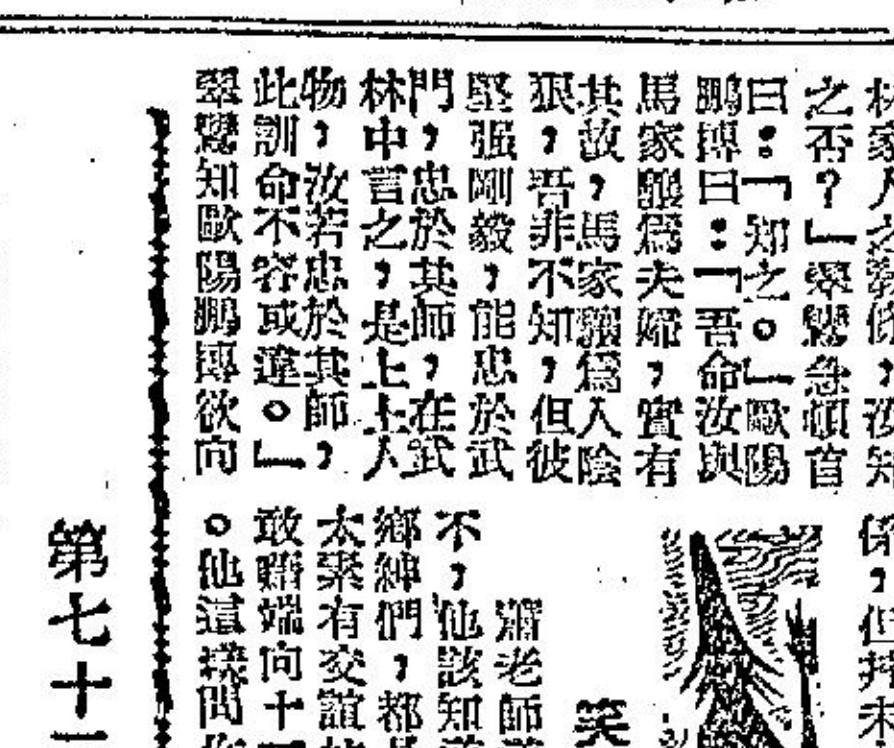 林家人之教條，汝知
之否？」翠鸞急頓首
曰：「知之。」歐陽
鵬摶曰：「吾命汝與
馬家驥為夫婦，實有
其故，馬家驥為人陰
狠，吾非不知，但彼
堅强剛毅，能忠於武
門，忠於其師，在武
林中言之，是上上人
物，汝若忠於其師，
此訓命不容或違。」
翠鸞知歐陽鵬摶欲向
係，但
未
笑
蕭老師
不，他該知
鄉紳們，都
太素有交誼
敢藉端向十
。他這樣問
第七十一